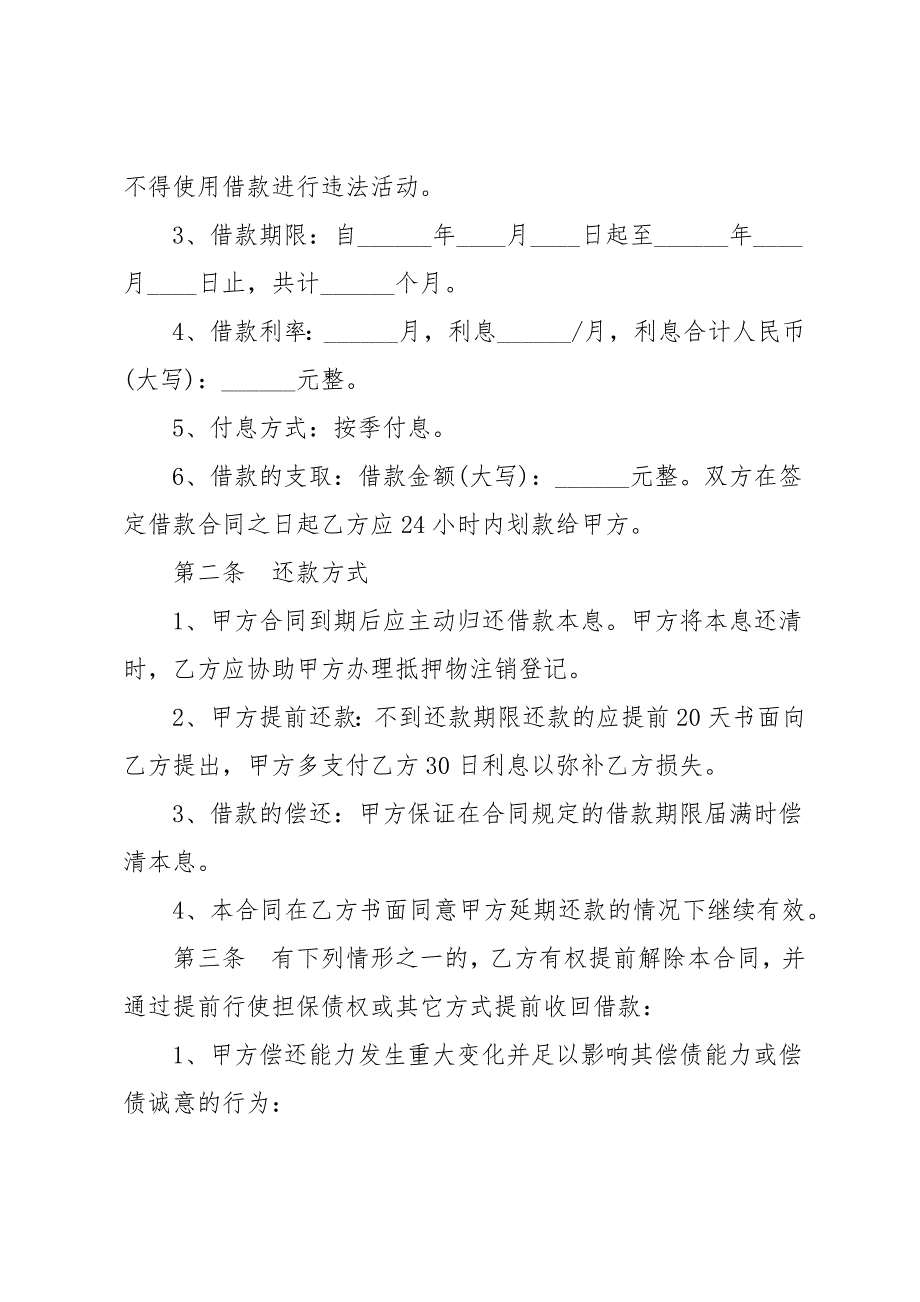 不得使用借款进行违法活动。
3、借款期限：自______年____月____日起至______年____
月____日止，共计______个月。
4、借款利率：______月，利息______/月，利息合计人民币
(大写)：______元整。
5、付息方式：按季付息。
6、借款的支取：借款金额(大写)：______元整。双方在签
定借款合同之日起乙方应24小时内划款给甲方。
第二条　还款方式
1、甲方合同到期后应主动归还借款本息。甲方将本息还清
时，乙方应协助甲方办理抵押物注销登记。
2、甲方提前还款：不到还款期限还款的应提前20天书面向
乙方提出，甲方多支付乙方30日利息以弥补乙方损失。
3、借款的偿还：甲方保证在合同规定的借款期限届满时偿
清本息。
4、本合同在乙方书面同意甲方延期还款的情况下继续有效。
第三条　有下列情形之一的，乙方有权提前解除本合同，并
通过提前行使担保债权或其它方式提前收回借款：
1、甲方偿还能力发生重大变化并足以影响其偿债能力或偿
债诚意的行为：